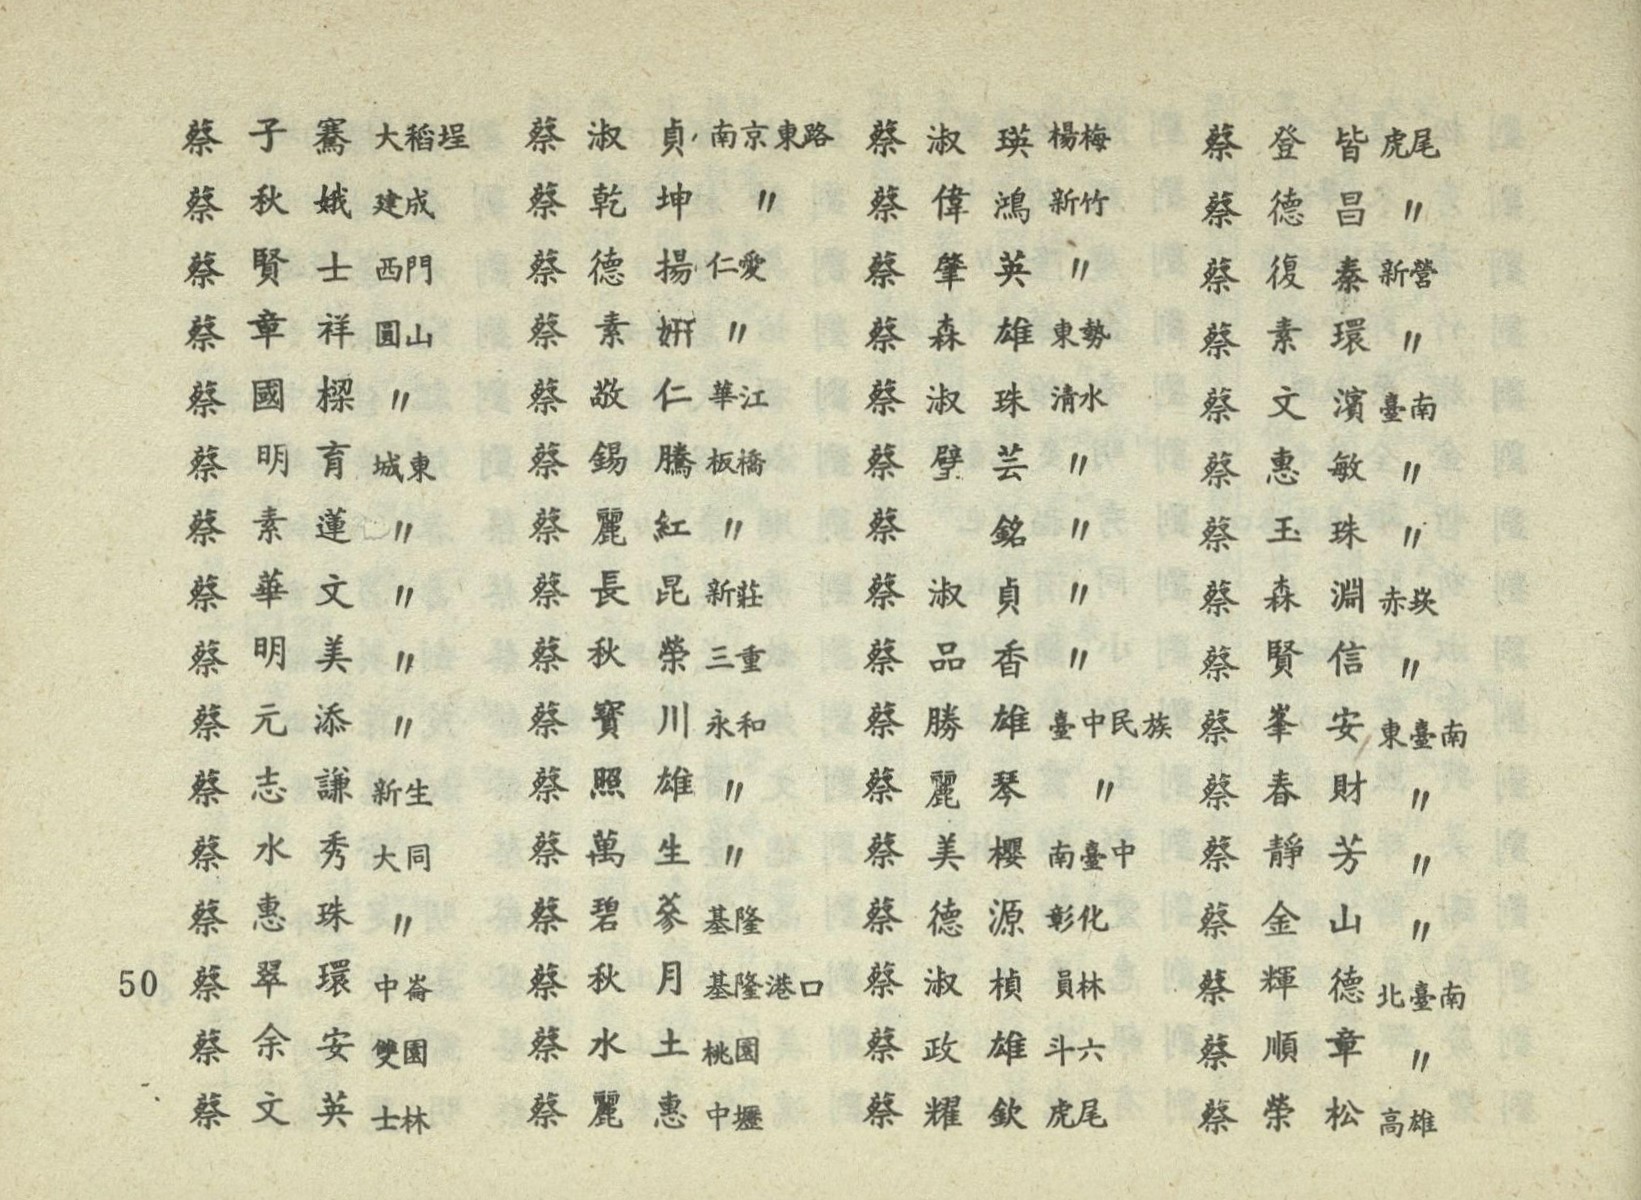 蔡子騫 大稻埕 蔡淑貞 南京東路 蔡淑瑛 楊梅 蔡登皆 虎尾
蔡秋娥 建成 蔡乾坤 〃 蔡偉鴻 新竹 蔡德昌 〃
蔡賢士 西門 蔡德揚 仁愛 蔡肇英 〃 蔡復秦 新營
蔡章祥 圓山 蔡素姸 〃 蔡森雄 東勢 蔡素環 〃
蔡國樑 〃 蔡敬仁 華江 蔡淑珠 清水 蔡文濱 臺南
蔡明育 城東 蔡錫騰 板橋 蔡壁芸 〃 蔡惠敏 〃
蔡素蓮 〃 蔡麗紅 〃 蔡銘 〃 蔡玉珠 〃
蔡華文 〃 蔡長昆 新莊 蔡淑貞 〃 蔡森淵 赤崁
蔡明美 〃 蔡秋榮 三重 蔡品香 〃 蔡賢信 〃
蔡元添 〃 蔡寶川 永和 蔡勝雄 臺中民族 蔡峯安 東臺南
蔡志謙 新生 蔡照雄 〃 蔡麗琴 〃 蔡春財 〃
蔡水秀 大同 蔡萬生 〃 蔡美櫻 南臺中 蔡靜芳 〃
蔡惠珠 〃 蔡碧蔘 基隆 蔡德源 彰化 蔡金山 〃
50 蔡翠環 中崙 蔡秋月 基隆港口 蔡淑楨 員林 蔡輝德 北臺南
蔡余安 雙園 蔡水土 桃園 蔡政雄 斗六 蔡順章 〃
蔡文英 士林 蔡麗惠 中壢 蔡耀欽 虎尾 蔡榮松 高雄